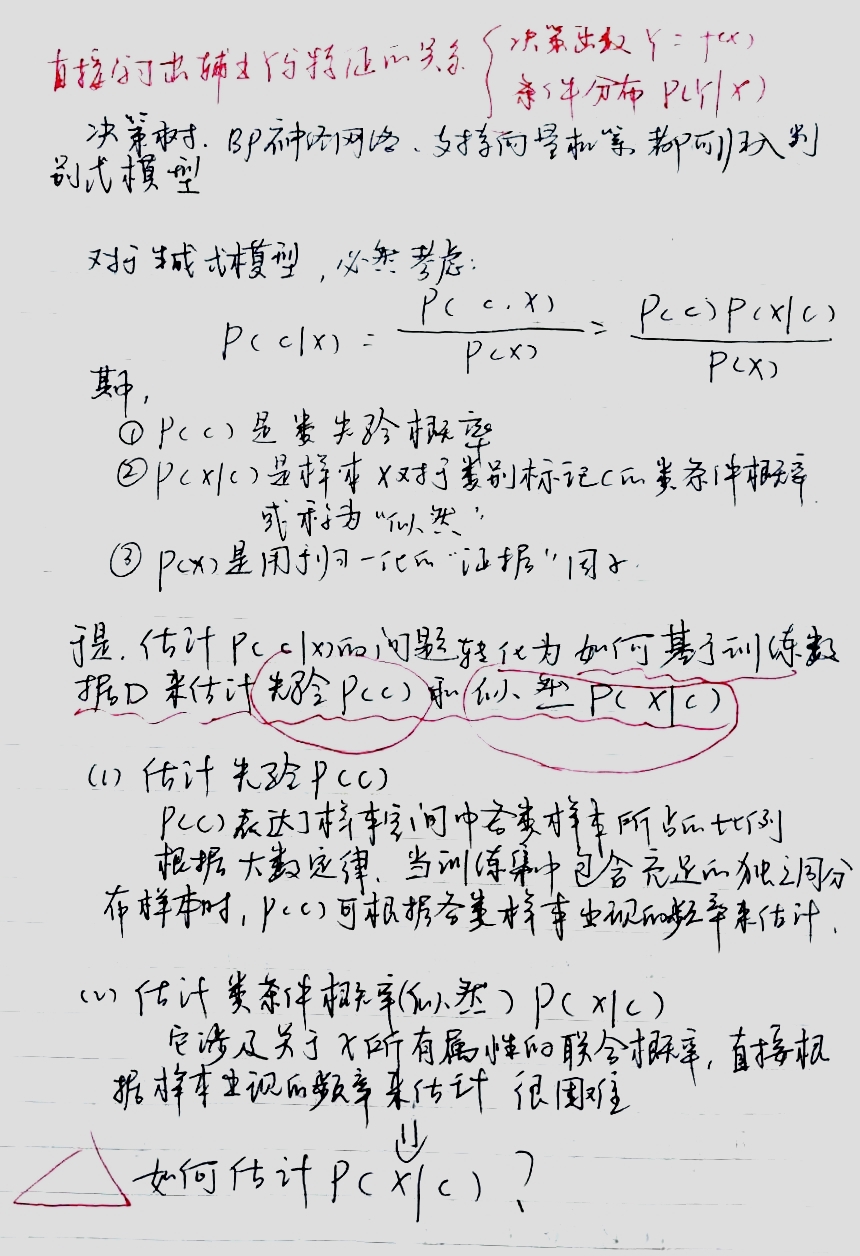 直接学习出输出Y与特征的关系 { 决策函数 Y = f(x)
条件分布 P(Y|X)
决策树、BP神经网络、支持向量机等,都可归入判
别式模型
对于生成式模型,必然考虑:
P(c|x) = P(c,x) / P(x) = P(c)P(x|c) / P(x)
其中,
① P(c)是类先验概率
② P(x|c)是样本x对于类别标记c的类条件概率
或称为“似然”
③ P(x)是用于归一化的“证据”因子.
于是,估计P(c|x)的问题转化为如何基于训练数
据D来估计先验P(c)和似然P(x|c)
(1) 估计先验P(c)
P(c)表达了样本空间中各类样本所占的比例
根据大数定律,当训练集中包含充足的独立同分
布样本时,P(c)可根据各类样本出现的频率来估计.
(2) 估计类条件概率(似然)P(x|c)
它涉及关于x所有属性的联合概率,直接根
据样本出现的频率来估计很困难
⇓
如何估计P(x|c)?